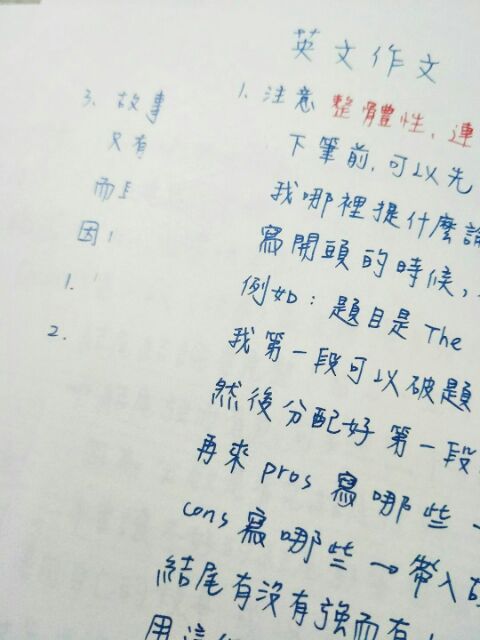 英文作文
1. 注意 整體性、連
下筆前,可以先
我哪裡提什麼論
寫開頭的時候,
例如:題目是 The
我第一段可以破題
然後分配好第一段
再來 pros 寫哪些 →
cons 寫哪些 → 帶入
結尾有沒有強而有
用這
3. 故事
只有
而且
因
1.
2.